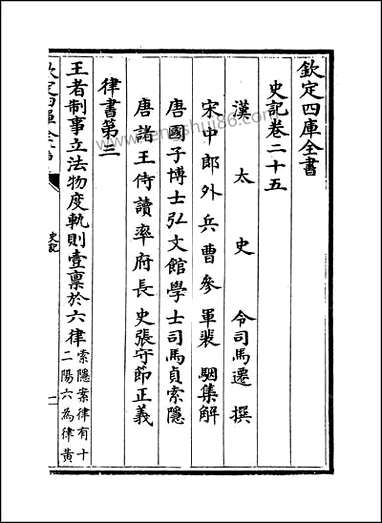 欽定四庫全書
史記卷二十五
漢太史令司馬遷撰
宋中郎外兵曹參軍裴駰集解
唐國子博士弘文館學士司馬貞索隱
唐諸王侍讀率府長史張守節正義
律書第三
王者制事立法物度軌則壹禀於六律索隱案律有十
二陽六為律黃
史記
一